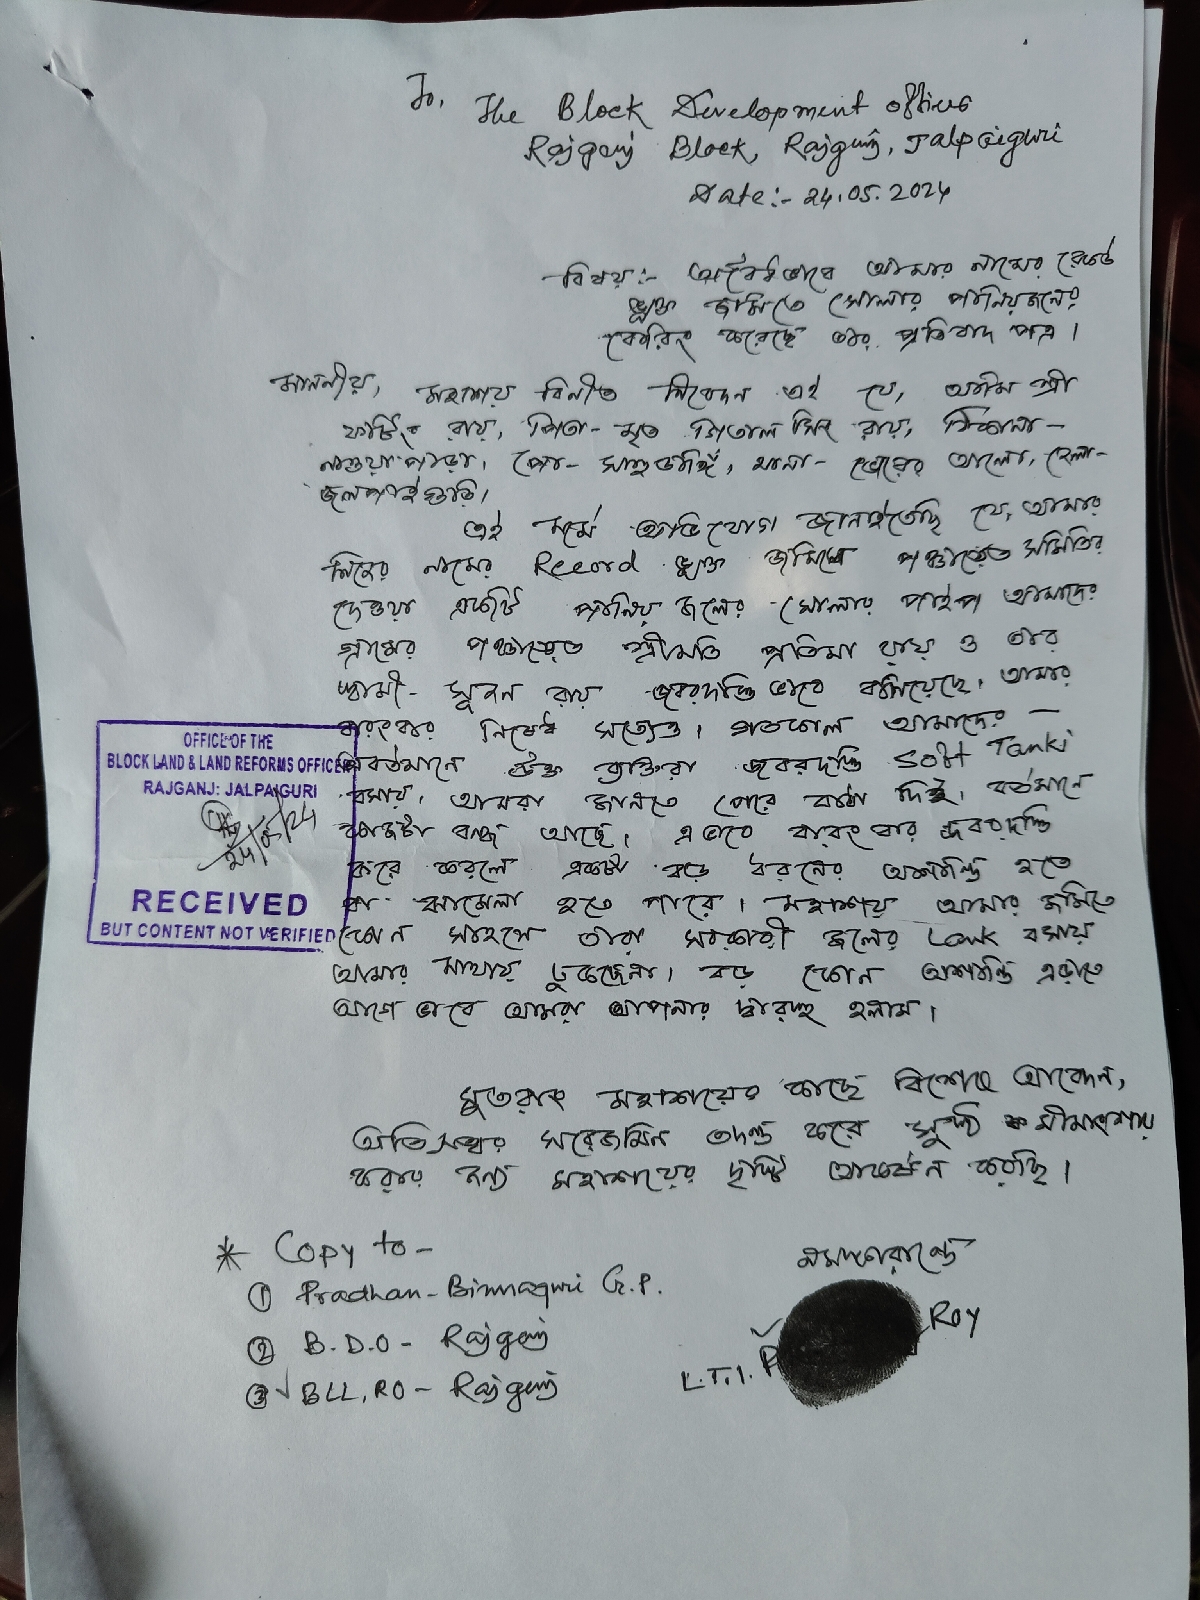 To, The Block Development officer
Rajganj Block, Rajganj, Jalpaiguri
Date:- 24.05.2024
বিষয়:- অবৈধভাবে আমার নামের রেকর্ড
ভুক্ত জমিতে সোলার পানিয়জলের
বোরিং করেছে তার প্রতিবাদ পত্র।
মাননীয়, মহাশয় বিনীত নিবেদন এই যে, আমি শ্রী
রায়, পিতা- মৃত সিং রায়, ঠিকানা-
পাড়া, পো- থানা- ভোরের আলো, জেলা-
জলপাইগুড়ি।
এই মর্মে অভিযোগ জানাইতেছি যে, আমার
নিজের নামের Record ভুক্ত জমিতে পঞ্চায়েত সমিতির
দেওয়া একটি পানিয় জলের সোলার পাইপ আমাদের
গ্রামের পঞ্চায়েত শ্রীমতি প্রতিমা রায় ও তার
স্বামী- রায় জবরদস্তি ভাবে বসিয়েছে। আমার
বারংবার নিষেধ সত্যেও। গতকাল আমাদের -
উক্ত ব্যক্তিরা জবরদস্তি Soft Tanki
বসায়, আমরা জানতে পেরে বাধা দিই, বর্তমানে
কাজটা বন্ধ আছে। এভাবে বারংবার জবরদস্তি
করে করলে একটা বড় ধরনের অশান্তি হতে
বা ঝামেলা হতে পারে। মহাশয় আমার জমিতে
কোন সাহসে তারা সরকারী জলের tank বসায়
আমার মাথায় ঢুকছেনা। বড় কোন অশান্তি এড়াতে
আগে ভাবে আমরা আপনার দ্বারস্থ হলাম।
সুতরাং মহাশয়ের কাছে বিশেষ আবেদন,
অতিসত্বর সরেজমিন তদন্ত করে সুষ্ঠ মীমাংশায়
করার জন্য মহাশয়ের দৃষ্টি আকর্ষন করছি।
OFFICE OF THE
BLOCK LAND & LAND REFORMS OFFICER
RAJGANJ: JALPAIGURI
24/05/24
RECEIVED
BUT CONTENT NOT VERIFIED
* Copy to-
① Pradhan- Binnaguri G.P.
② B.D.O- Rajganj
③ BLL.RO- Rajganj
নমস্কারান্তে
L.T.I. Roy